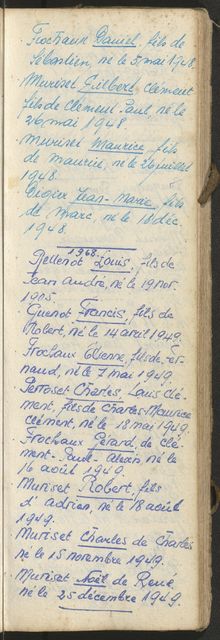 Frochaux Daniel, fils de
Sébastien, né le 5 mai 1948.
Muriset Gilbert, Clément
fils de Clément Paul, né le
26 mai 1948.
Muriset Maurice, fils
de Maurice, né le 26 juillet
1948.
Digier Jean-Marie, fils
de Marc, né le 18 déc.
1948.
1968.
Pellenot Louis, fils de
Jean André, né le 19 nov.
1905.
Guenot Francis, fils de
Robert, né le 14 avril 1949.
Frochaux Etienne, fils de Fer-
nand, né le 7 mai 1949.
Perroset Charles, Louis Clé-
ment, fils de Charles-Maurice
Clément, né le 18 mai 1949.
Frochaux Gérard, de Clé-
ment-Paul-Alexis, né le
16 août 1949.
Muriset Robert, fils
d'Adrien, né le 18 août
1949.
Muriset Charles de Charles
né le 15 novembre 1949.
Muriset Noël de René,
né le 25 décembre 1949.